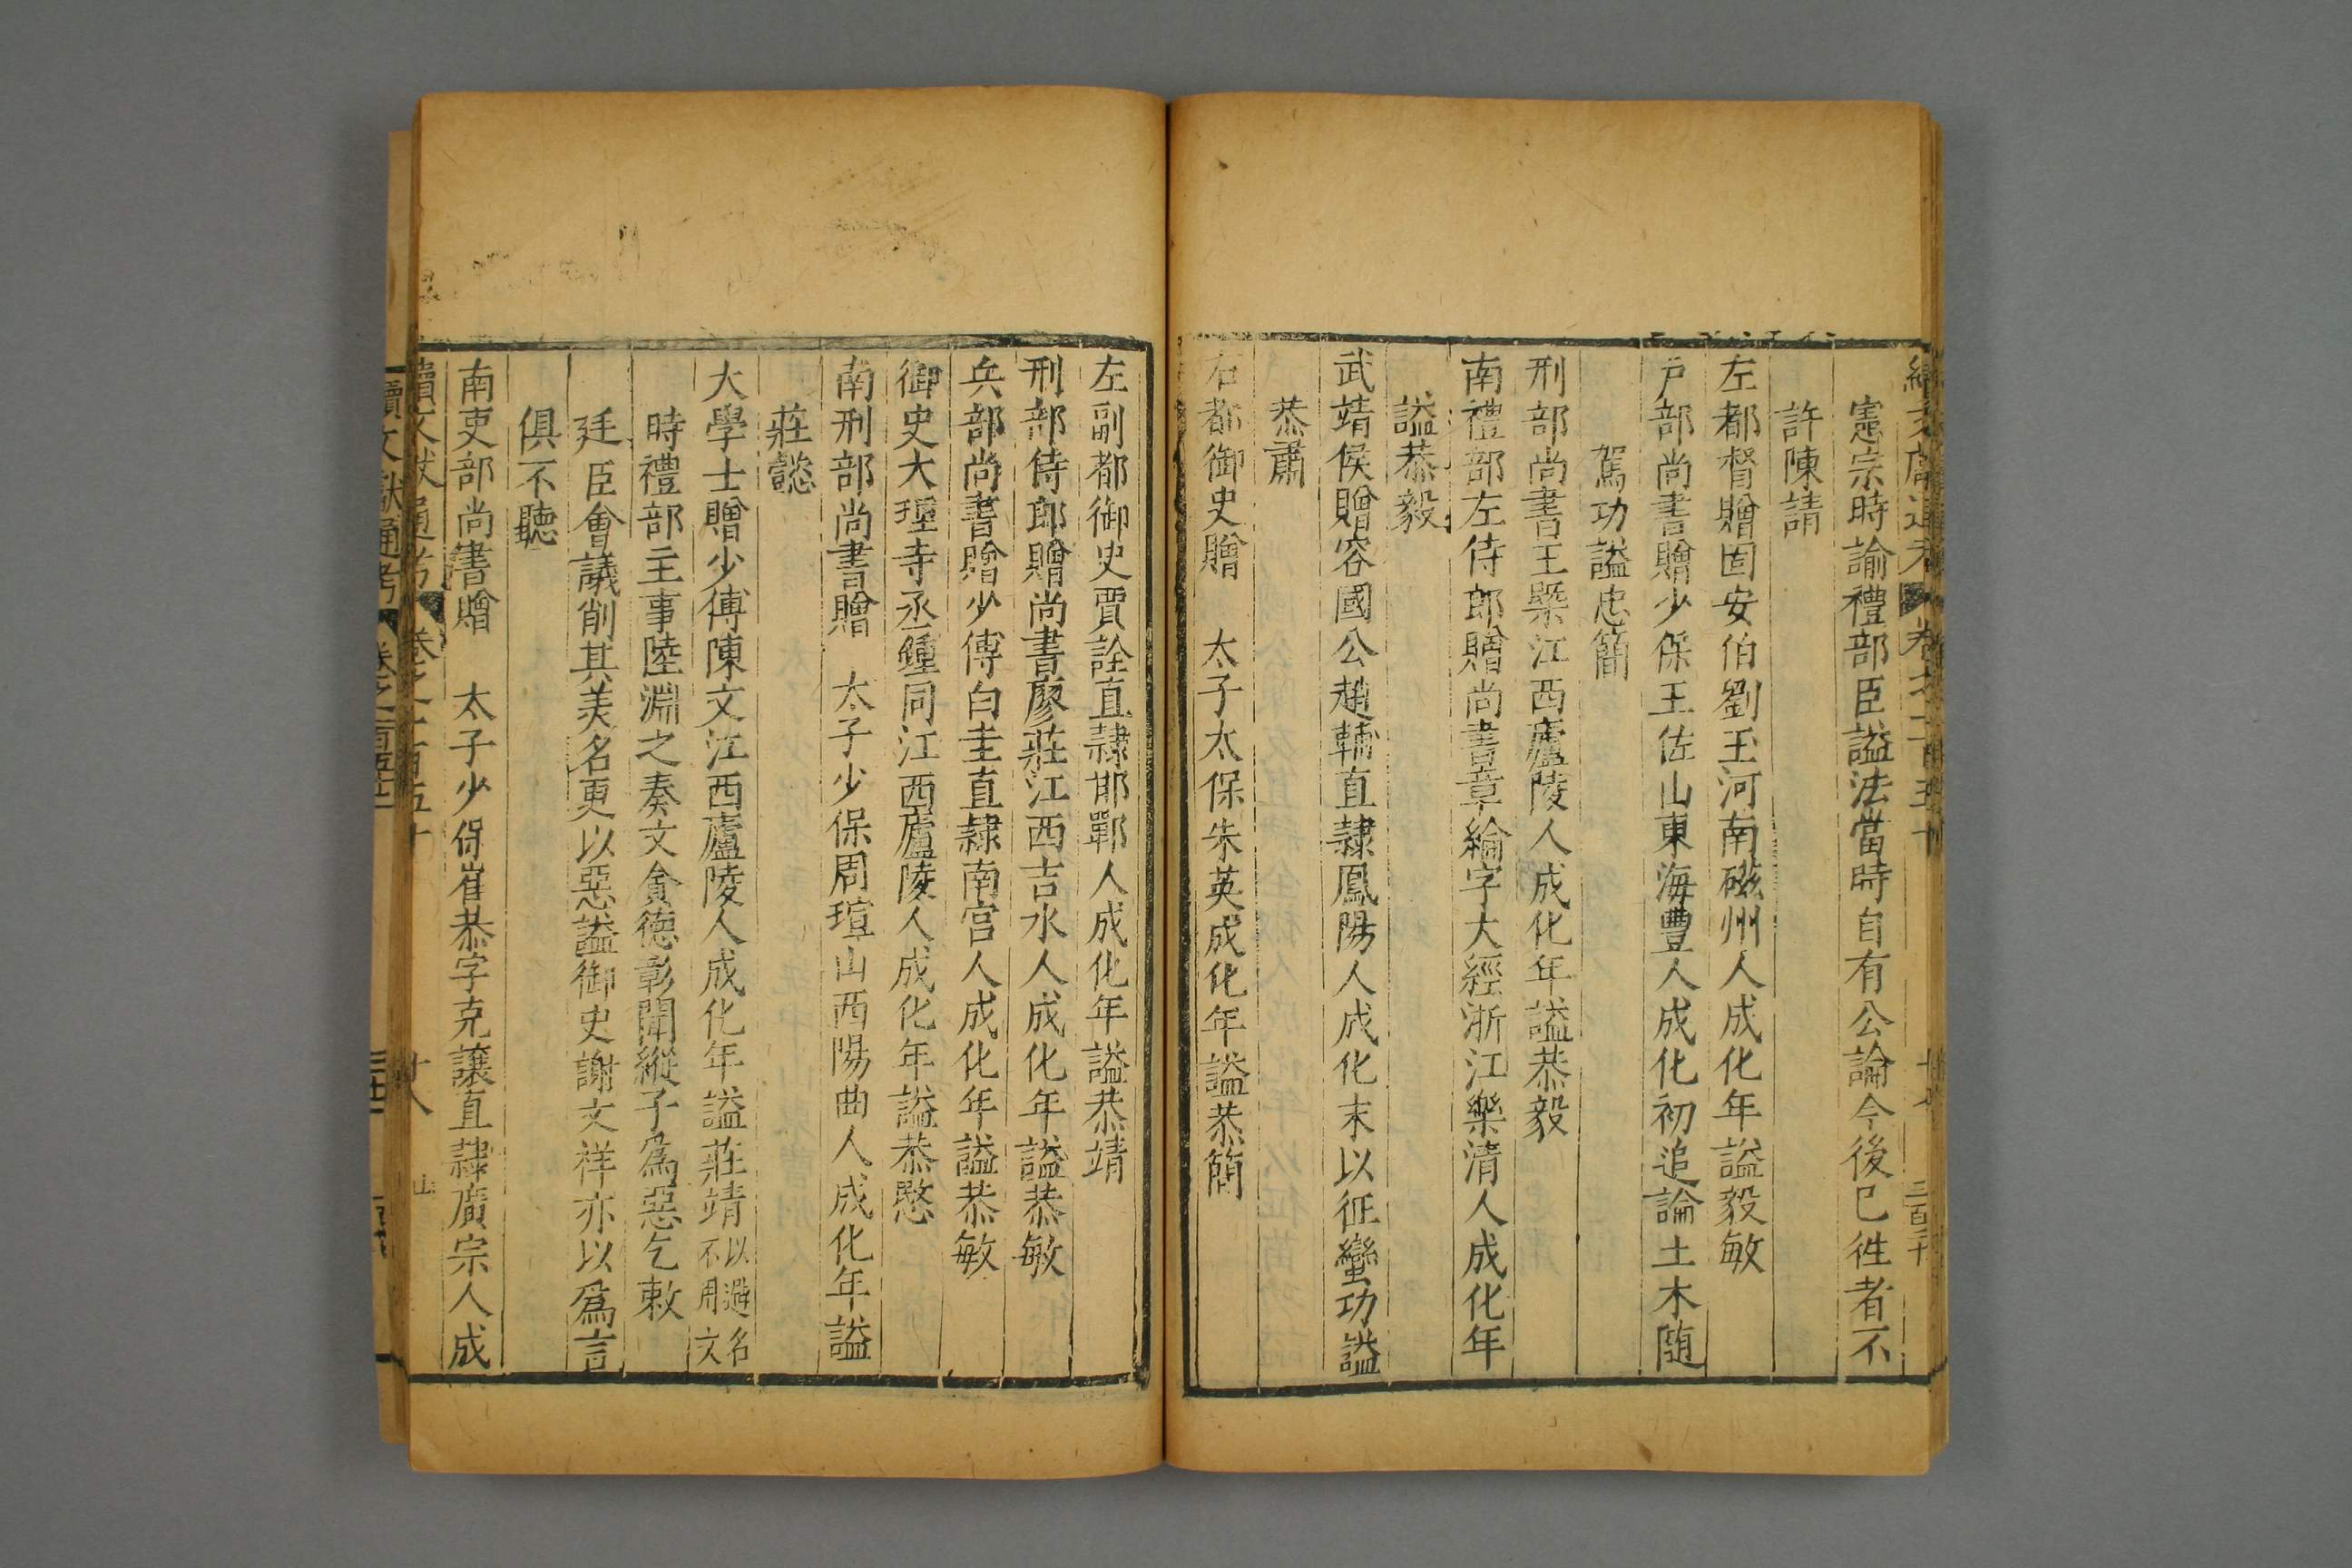 憲宗時諭禮部臣謚法當時自有公論今後已徃者不
許陳請
左都督贈固安伯劉玉河南磁州人成化年謚毅敏
戶部尚書贈少保王佐山東海豐人成化初追論土木随
駕功謚忠簡
刑部尚書王槩江西廬陵人成化年謚恭毅
南禮部左侍郎贈尚書章綸字大經浙江樂清人成化年
謚恭毅
武靖侯贈容國公趙輔直隷鳳陽人成化末以征蠻功謚
恭肅
右都御史贈　太子太保朱英成化年謚恭簡
左副都御史賈詮直隷邯鄲人成化年謚恭靖
刑部侍郎贈尚書廖莊江西吉水人成化年謚恭敏
兵部尚書贈少傅白圭直隷南宫人成化年謚恭敏
御史大理寺丞鍾同江西廬陵人成化年謚恭愍
南刑部尚書贈　太子少保周瑄山西陽曲人成化年謚
莊懿
大學士贈少傅陳文江西廬陵人成化年謚莊靖以避名不用文
時禮部主事陸淵之奏文貪德彰聞縱子為惡乞敕
廷臣會議削其美名更以惡謚御史謝文祥亦以為言
俱不聽
南吏部尚書贈　太子少保崔恭字克讓直隷廣宗人成
續文獻通考 卷之二百五十 廿八
續文獻通考